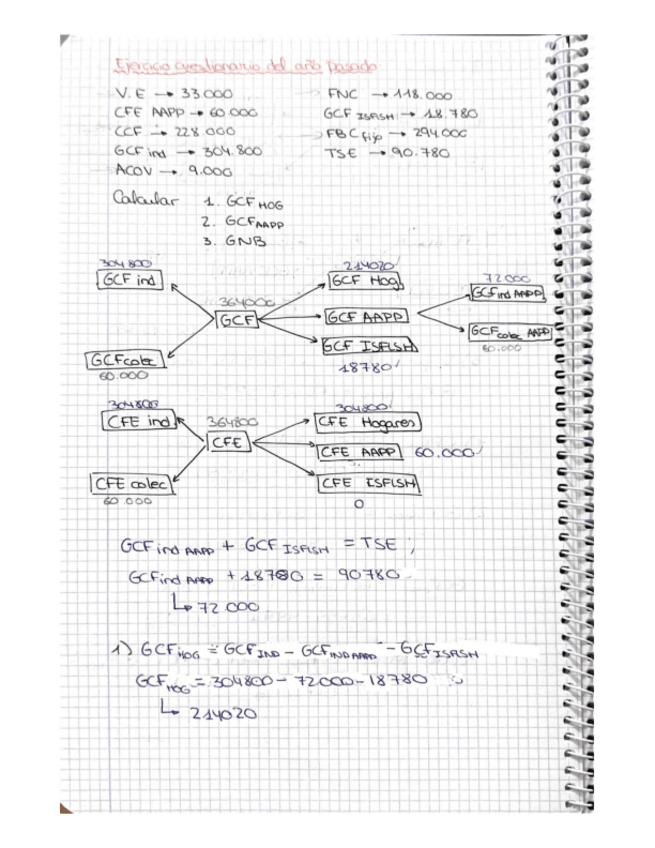 Ejercicio cuestionario del año pasado
V.E → 33.000
FNC → 118.000
CFE AAPP → 60.000
GCF ISFLSH → 18.780
CCF → 228.000
FBC fijo → 294.000
GCF ind → 304.800
TSE → 90.780
ACOV → 9.000
Calcular 1. GCF HOG
2. GCF AAPP
3. GNB
304800
214020
72000
GCF ind
GCF Hog
GCFind AAPP
364000
GCF
GCF AAPP
GCFcolec AAPP
60.000
GCFcolec
GCF ISFLSH
60.000
18780
304800
304800
CFE ind
364800
CFE Hogares
CFE
CFE AAPP 60.000
CFE colec
CFE ISFLSH
60.000
0
GCF ind AAPP + GCF ISFLSH = TSE ;
GCFind AAPP + 18780 = 90780
↳ 72.000
1) GCF HOG = GCF IND - GCF IND AAPP - GCF ISFLSH
GCF HOG = 304800 - 72000 - 18780
↳ 214020